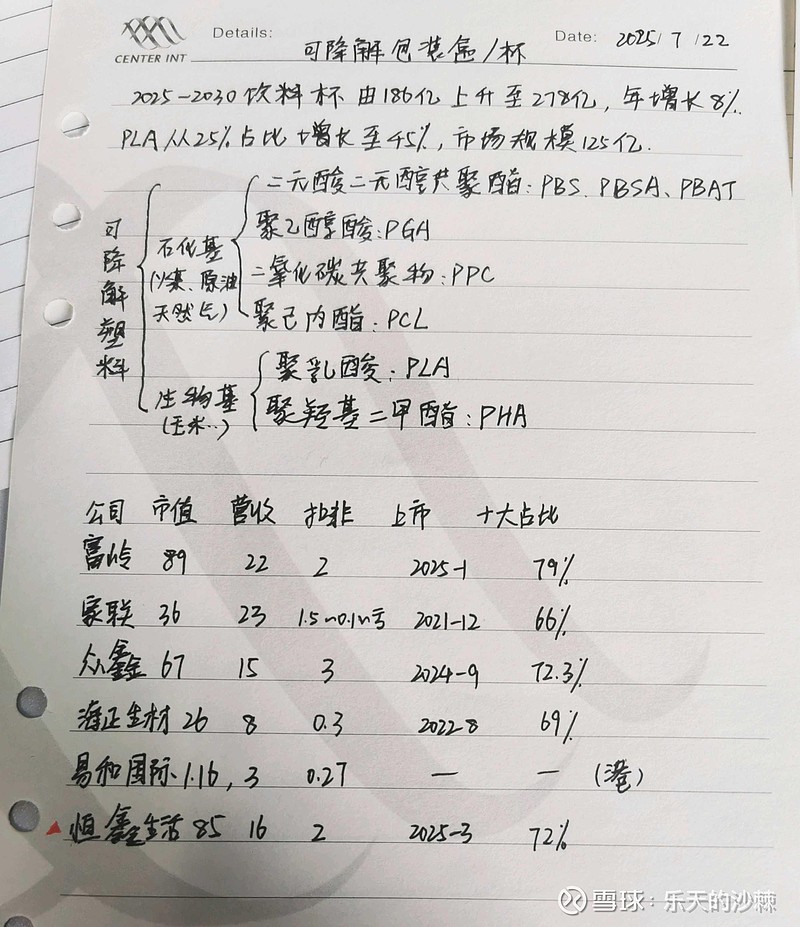 CENTER INT
Details:
可降解包装盒/杯
Date: 2025/7/22
2025-2030饮料杯由186亿上升至278亿,年增长8%.
PLA从25%占比增长至45%,市场规模125亿.
可降解塑料
石化基
(以煤、原油
天然气)
二元酸二元醇共聚酯:PBS、PBSA、PBAT
聚乙醇酸:PGA
二氧化碳共聚物:PPC
聚己内酯:PCL
生物基
(玉米..)
聚乳酸:PLA
聚羟基二甲酯:PHA
公司 市值 营收 扣非 上市 十大占比
富岭 89 22 2 2025-1 79%
家联 36 23 1.5~0.1~亏 2021-12 66%
众鑫 67 15 3 2024-9 72.3%
海正生材 26 8 0.3 2022-8 69%
易和国际 1.16, 3 0.27 — — (港)
恒鑫生活 85 16 2 2025-3 72%
雪球:乐天的沙棘